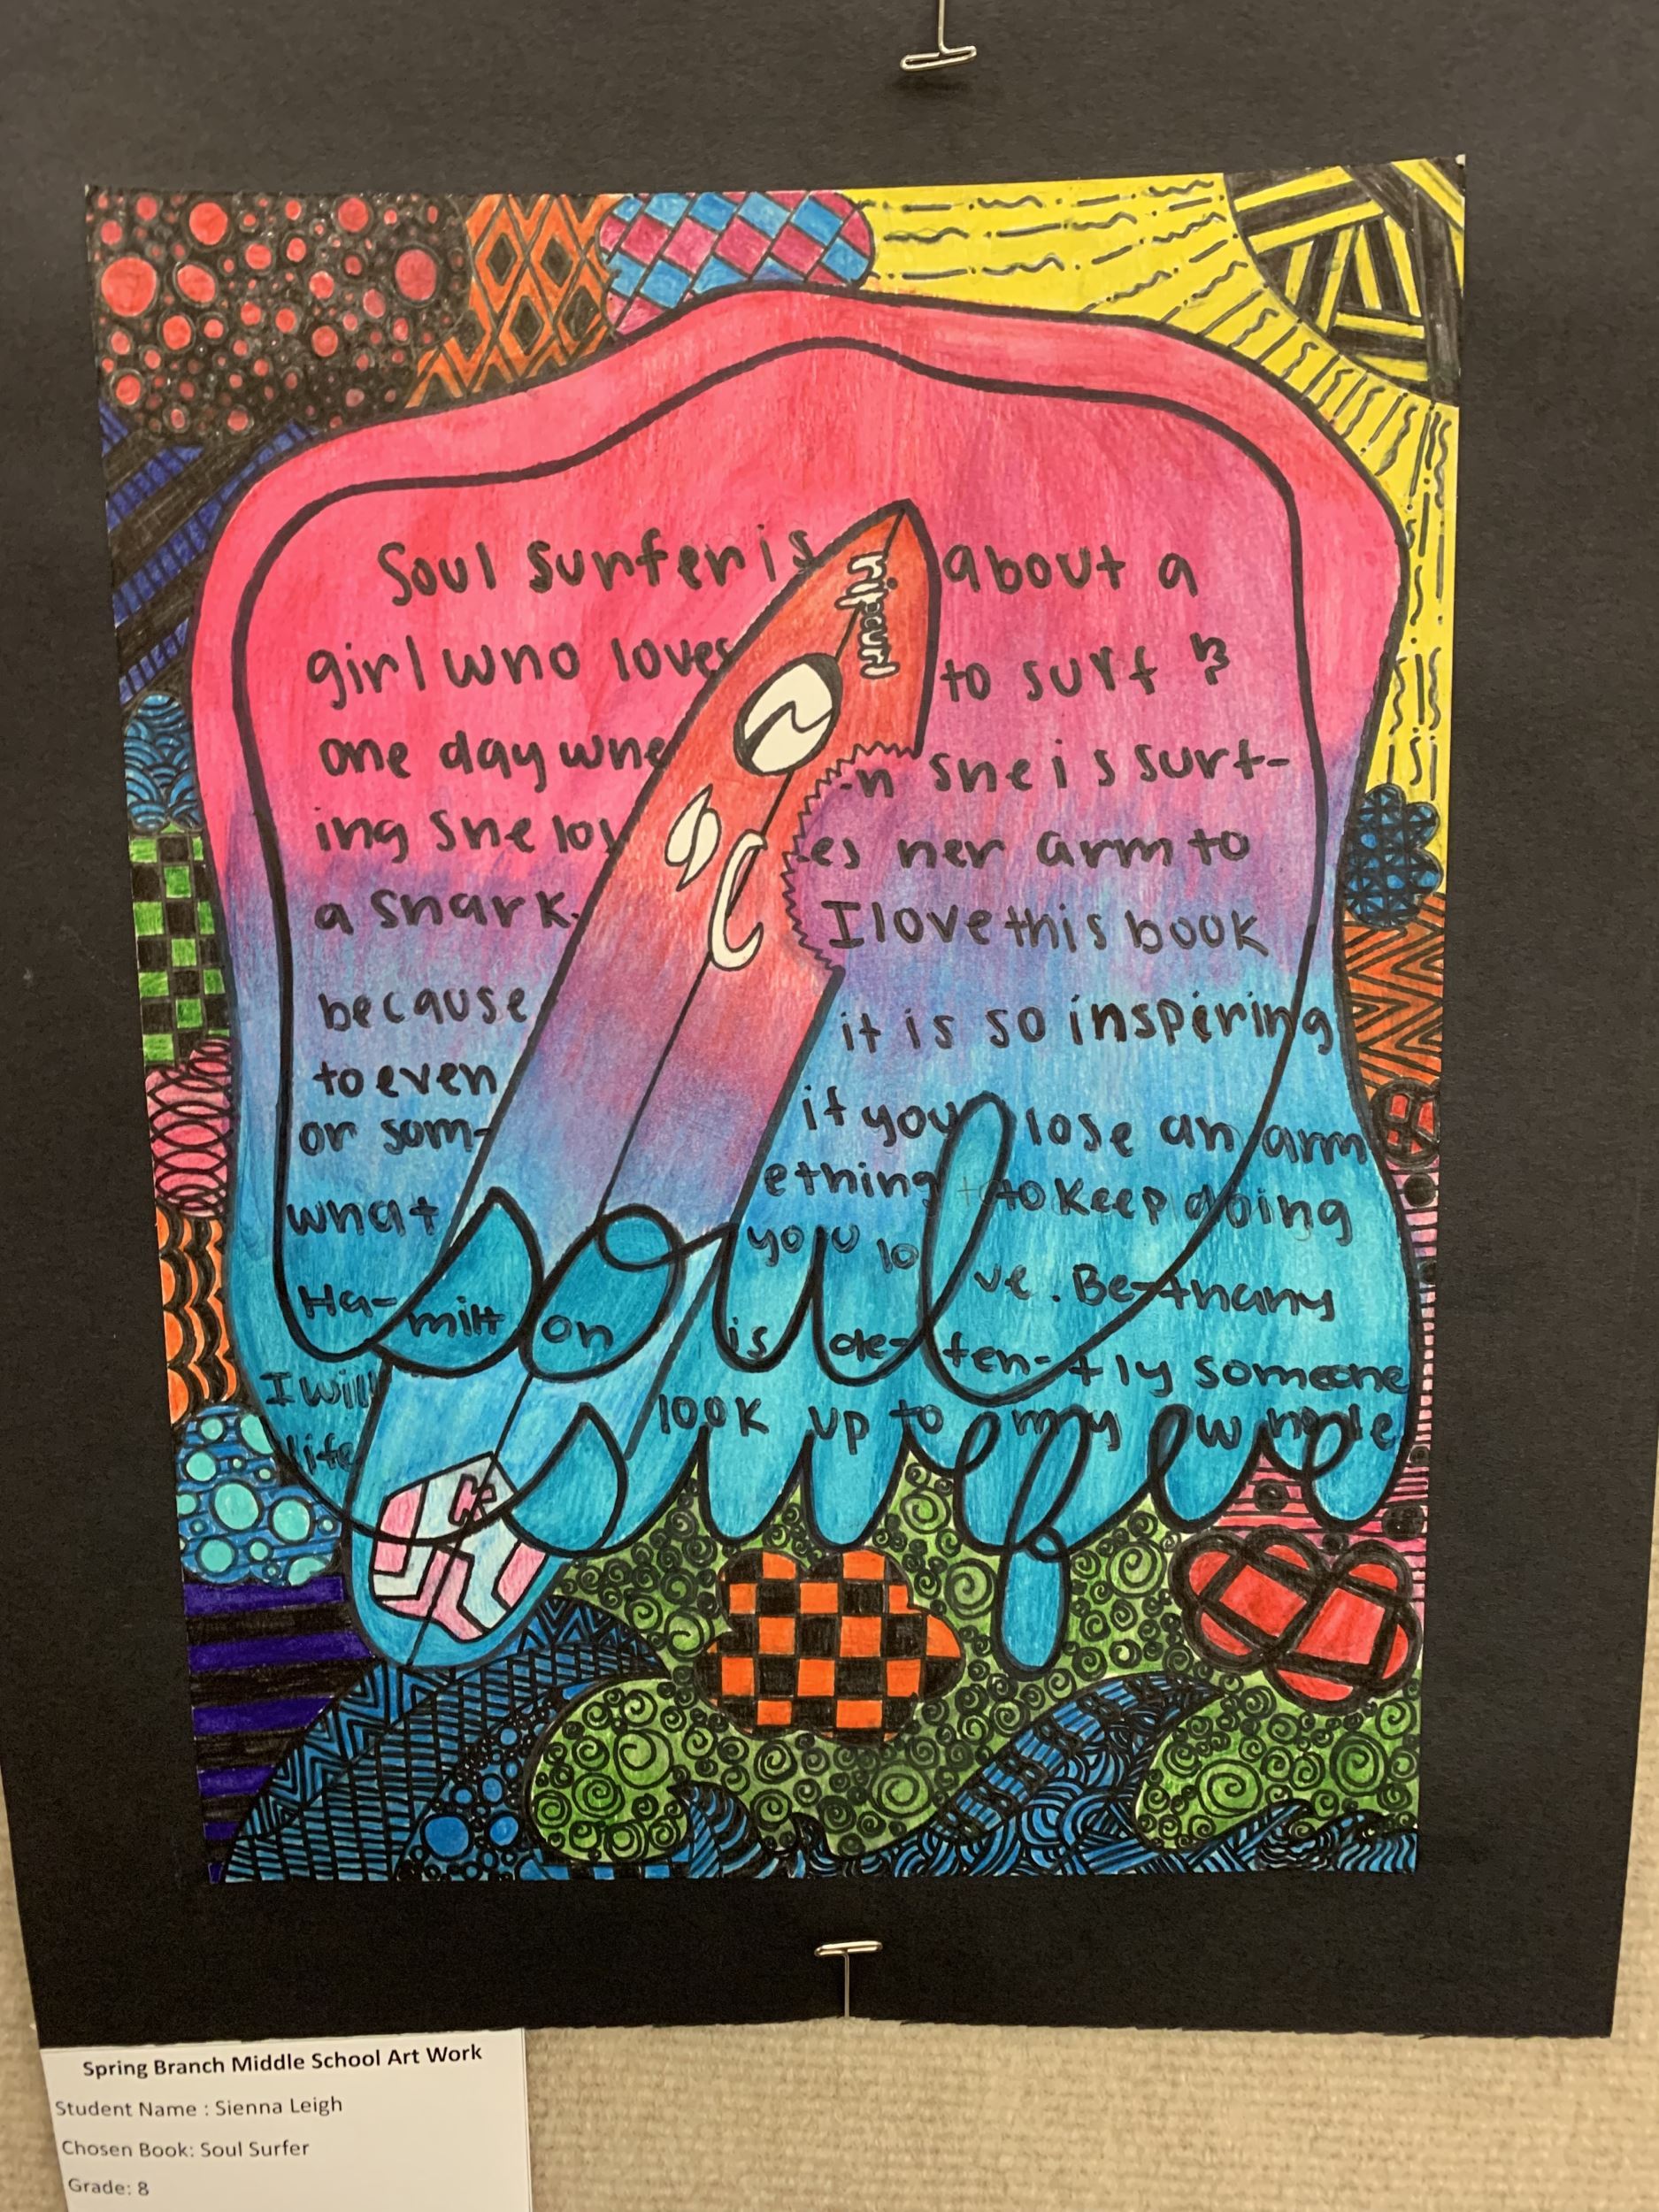 Soul Surfer is about a
girl who loves to surf &
one day whe-n she is surf-
ing she loses her arm to
a shark. I love this book
because it is so inspiring
to even if you lose an arm
or som-ething to keep doing
what you love. Bethany
Ha-milton is de-fen-tly someone
I will look up to my whole
life
ripcurl
soul
surfer
Spring Branch Middle School Art Work
Student Name : Sienna Leigh
Chosen Book: Soul Surfer
Grade: 8